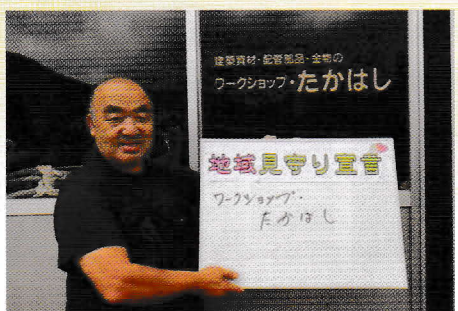 建築資材・配管部品・金物の
ワークショップ・たかはし
地域見守り宣言
ワークショップ・
たかはし